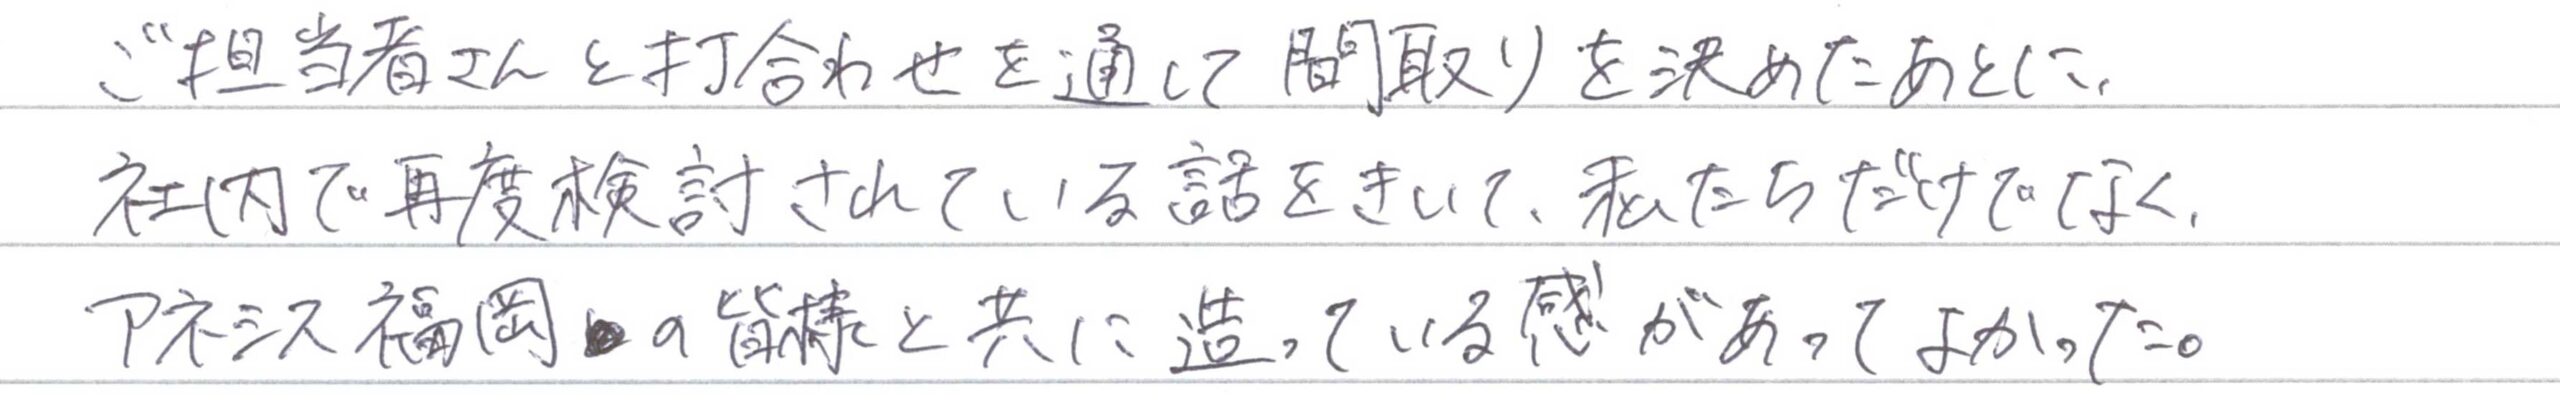 ご担当者さんと打合わせを通して間取りを決めたあとに、
社内で再度検討されている話をきいて、私たちだけでなく、
アネシス福岡の皆様と共に造っている感があってよかった。